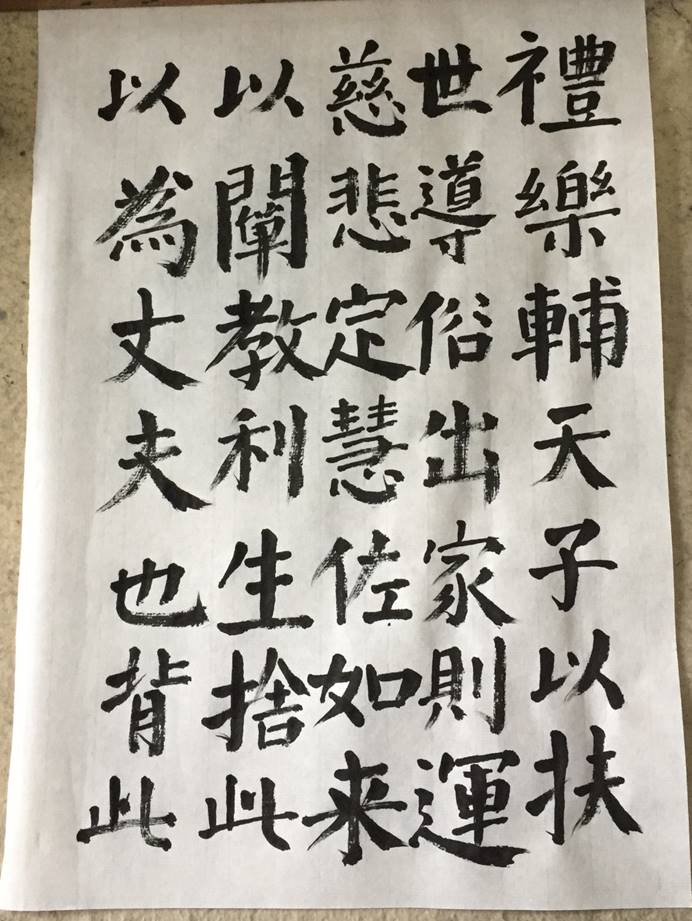 禮樂輔天子以扶
世導俗出家則運
慈悲定慧佐如来
以闡教利生捨此
以為丈夫也背此